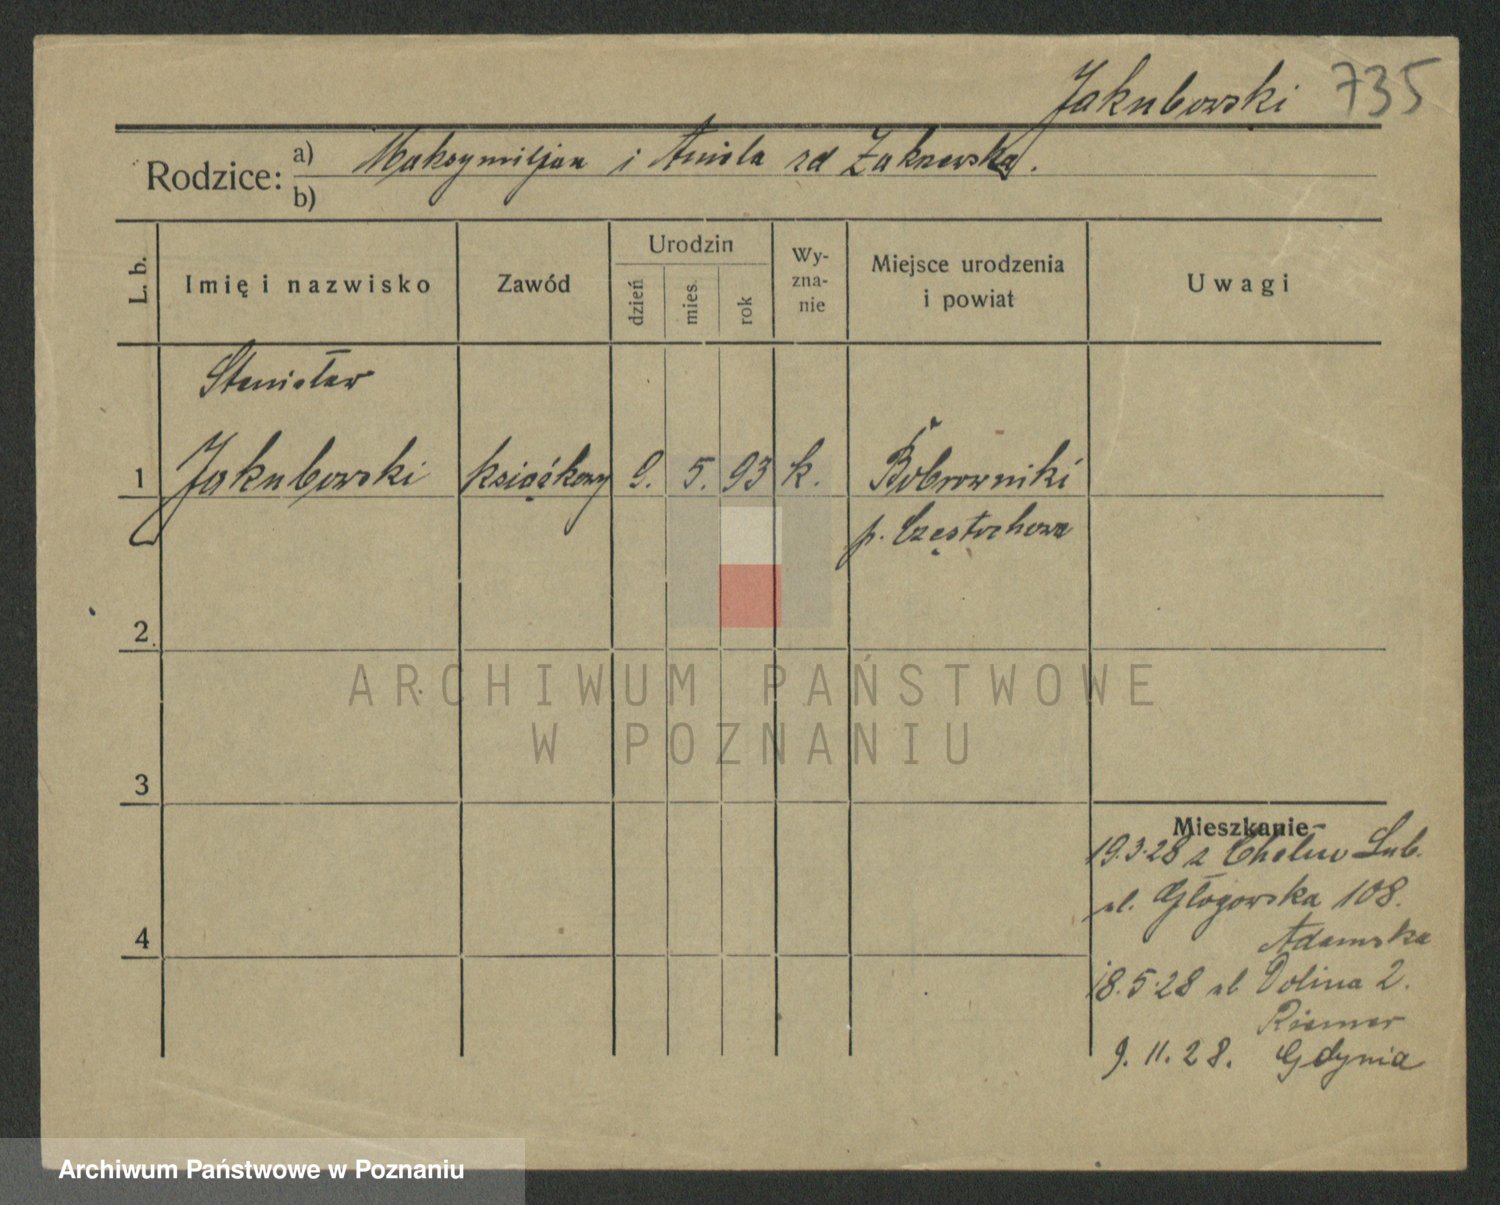 Jakubowski 735
Rodzice: a) Maksymiljan i Aniela zd Zakrzewska.
b)
L. b. Imię i nazwisko Zawód Urodzin dzień mies. rok Wy-zna-nie Miejsce urodzenia i powiat Uwagi
Stanisław
1 Jakubowski książkowy 9. 5. 93 k. Bobrowniki
p. Częstochowa
2
3
4
Mieszkanie
19.3.28 z Chełm Lub.
ul. Głogowska 108.
Adamska
18.5.28 ul Dolina 2.
9. 11. 28. Gdynia
ARCHIWUM PAŃSTWOWE
W POZNANIU
Archiwum Państwowe w Poznaniu